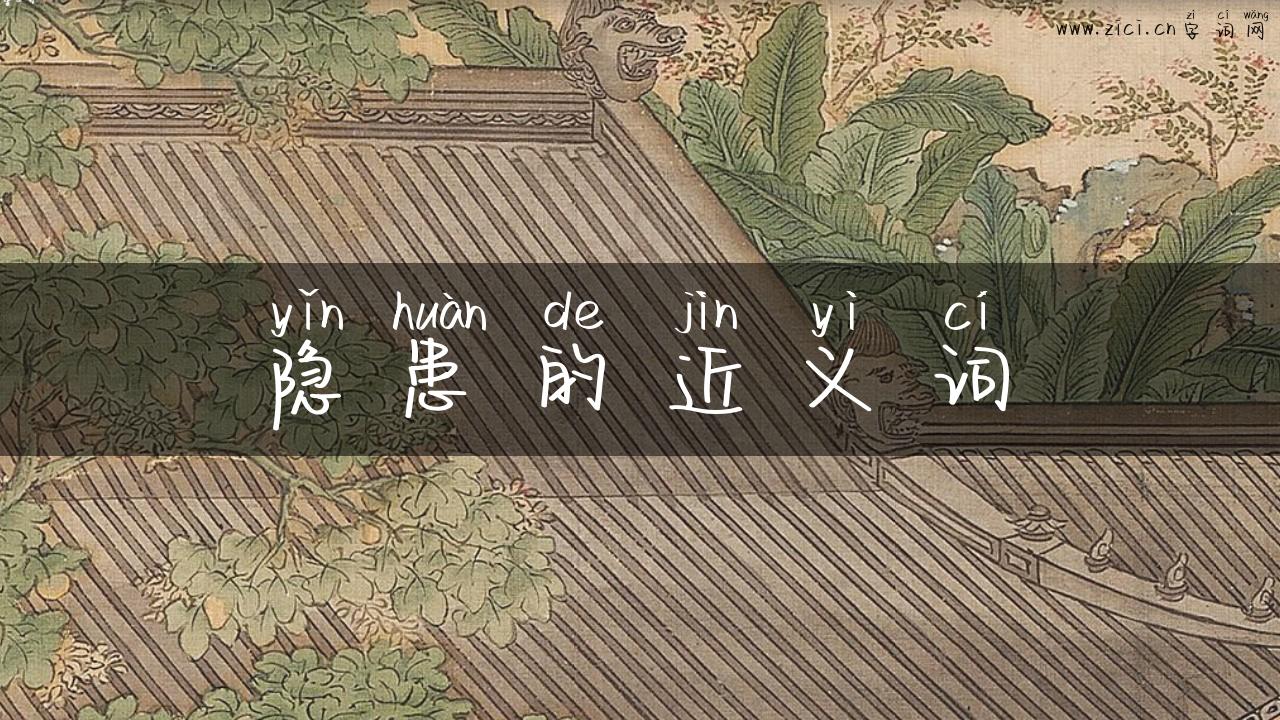 zì cí wǎng
www.zici.cn 字 词 网
yǐn huàn de jìn yì cí
隐 患 的 近 义 词